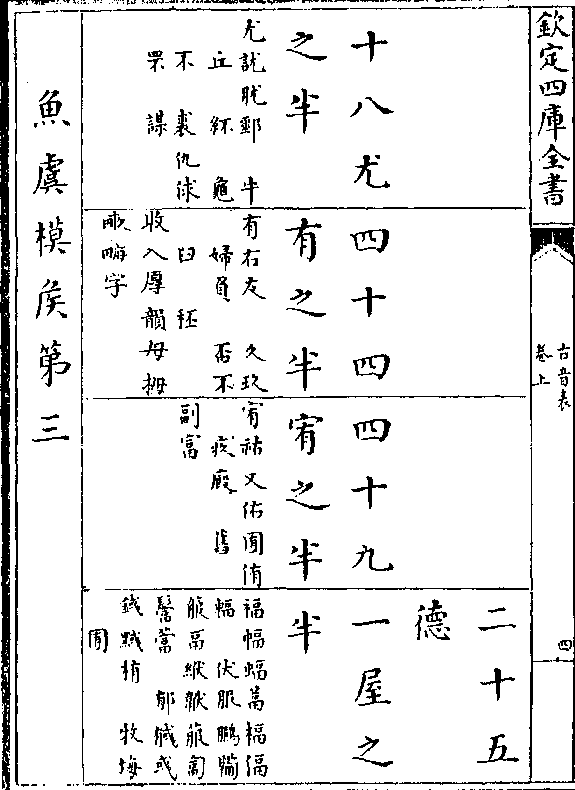 欽定四庫全書
古音表
卷上
四
十八尤
之半
尤訧肬郵 牛
丘 紑 龜
不 裘仇俅
罘 謀
四十四
有之半
有右友 久玖
婦負 否不
臼 秠
收入厚韻母拇
畝晦字
四十九
宥之半
宥祐又佑囿侑
疚廄 舊
副富
二十五
德
一屋之
半
福幅蝠 楅
輻 伏服鵩
菔匐
郁 彧
牧坶
囿
魚虞模侯第三